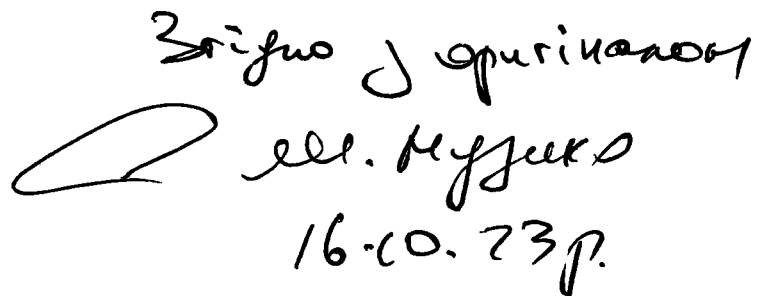 Згідно з оригіналом
М. Музика
16.10.23р.